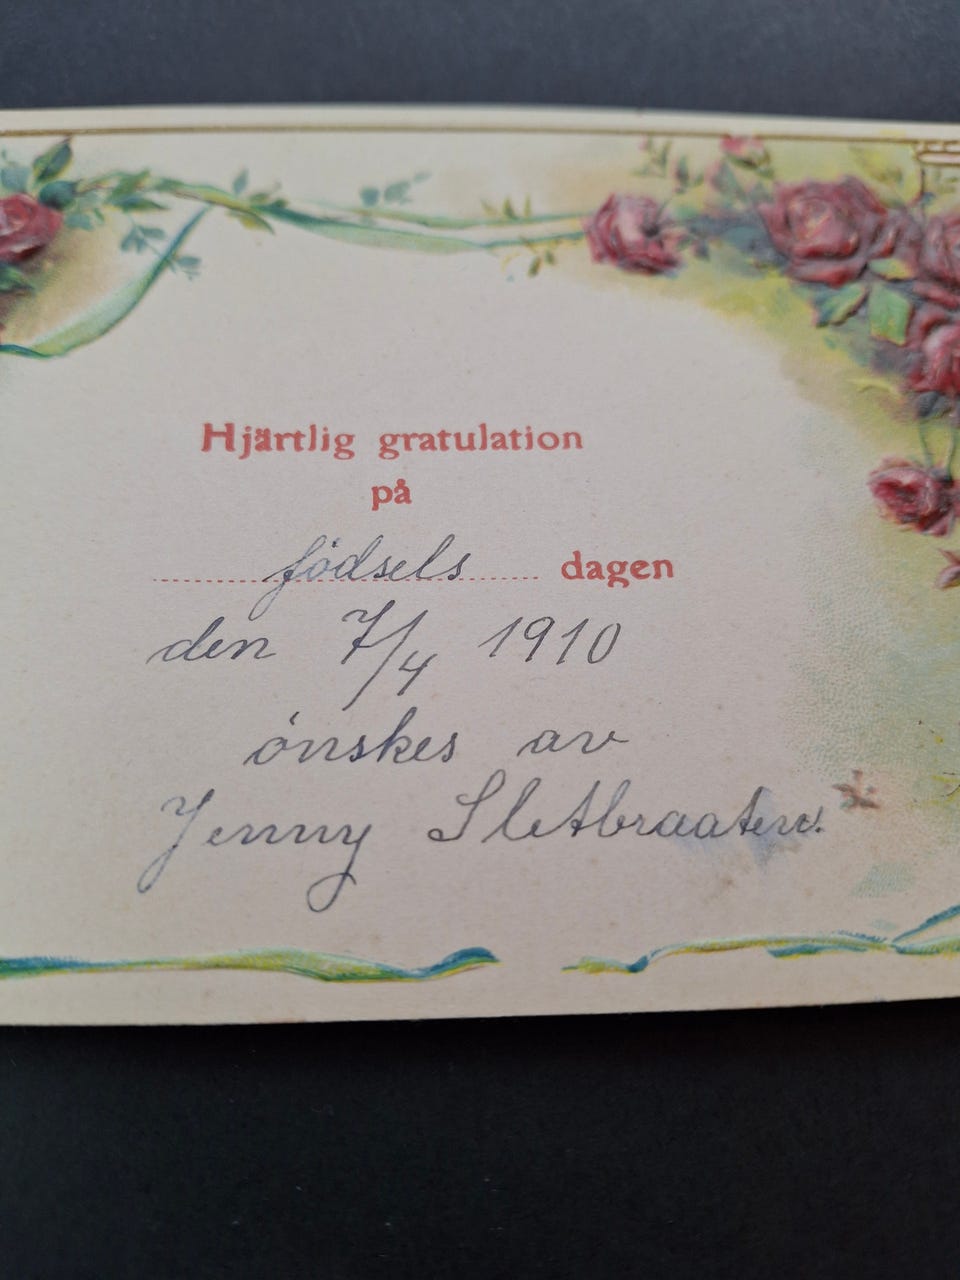 Hjärtlig gratulation
på
födsels dagen
den 7/4 1910
önskes av
Jenny Sletbraaten.